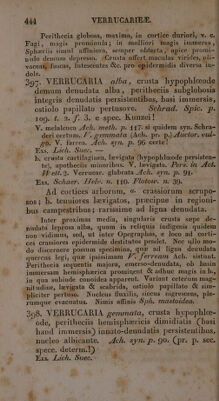 444 VERRUCARIEÆ.
Perithecia globosa, maxima, in cortice duriori, v. c.
Fagi, magis prominula; in molliori magis immersa,
Sphæriis simul affiniora, semper obtecta, apice promi-
nulo demum depresso. Crusta offert maculas virides, oli-
vaceas, fuscas, lutescentes &c. pro epidermidis diversa in-
dole.
397. VERRUCARIA alba, crusta hypophlœode
demum denudata alba, peritheciis subglobosis
integris denudatis persistentibus, basi immersis,
ostiolo papillato pertusove. Schrad. Spic. p.
109. t. 2. f. 3. e spec. Kunzei!
V. melaleuca Ach. meth. p. 117. si quidem syn. Schra-
deri certum. V. gemmata (Ach. pr. p.) Auctor. vul-
go. V. farrea. Ach. syn. p. 96 certe!
Exs. Lich. Suec. —
b. crusta cartilaginea, lævigata (hypophlœode persisten-
te), apotheciis minoribus. V. lævigata. Pers. in Act.
Wett. 2. Verrucar. glabrata Ach. syn. p. 91.
Exs. Schaer. Helv. n. 110. Flotow. n. 39.
Ad cortices arborum, a. crassiorum scrupo-
sos; b. tenuiores lævigatos, præcipue in regioni-
bus campestribus; rarissime ad ligna denudata.
Inter proxima media, singularis crusta sæpe de-
mum leprosa alba, quam in reliquis indigenis quidem
non vidimus, sed, ut inter Opegraphas, e loco ad corti-
ces crassiores epidermide destitutos pendet. Nec ullo mo-
do discernere possum speciminа, quæ ad ligna denudata
quercus legi, quæ ipsissimam V. farream Ach. sistunt.
Perithecia sequentis majora, emerso-denudata, ob basin
immersam hemisphærica prominent & adhuc magis in b.,
in qua subinde conoidea apparent. Variant ceterum mag-
nitudine, lævigata & scabrida, ostiolo papillato & sim-
pliciter pertuso. Nucleus fluxilis, siccus nigrescens, ple-
rumque evacuatus. Nimis affinis Sph. mastoidea.
398. VERRUCARIA gemmata, crusta hypophlœ-
ode, peritheciis hemisphæricis dimidiatis (basi
haud immersis) innato-denudatis persistentibus,
nucleo albicante. Ach. syn. p. 90. (pr. p. sec.
spece. determ.!)
Exs. Lich. Suec.